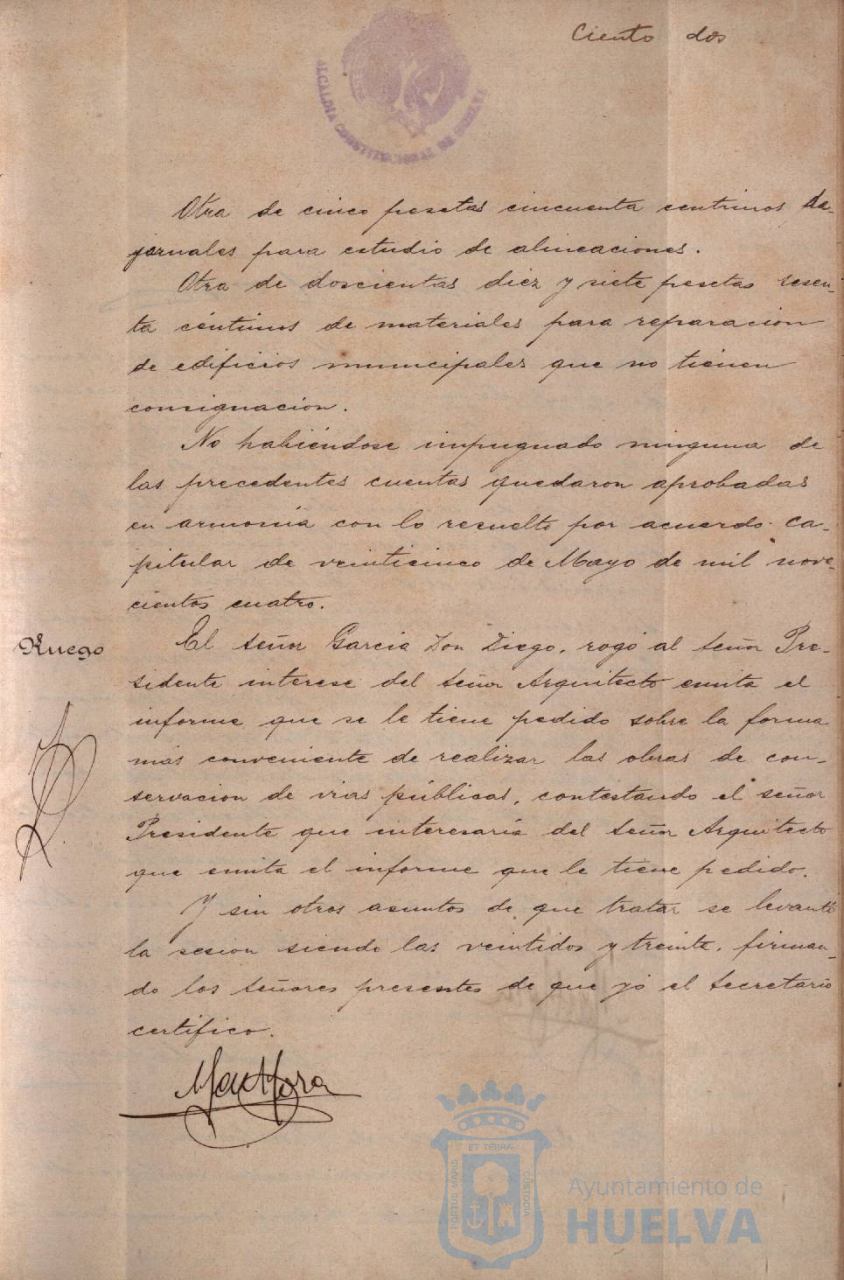 Ciento dos
ALCALDIA CONSTITUCIONAL DE HUELVA
Otra de cinco pesetas cincuenta centimos de
jornales para estudio de alineaciones.
Otra de doscientas diez y siete pesetas sesen-
ta céntimos de materiales para reparacion
de edificios municipales que no tienen
consignacion.
No habiéndose impugnado ninguna de
las precedentes cuentas quedaron aprobadas
en armonía con lo resuelto por acuerdo ca-
pitular de veinticinco de Mayo de mil nove-
cientos cuatro.
Ruego
El señor García Don Diego, rogó al señor Pre-
sidente interese del señor Arquitecto emita el
informe que se le tiene pedido sobre la forma
más conveniente de realizar las obras de con-
servacion de vias públicas, contestando el señor
Presidente que interesaría del señor Arquitecto
que emita el informe que le tiene pedido.
Y sin otros asuntos de que tratar se levantó
la sesion siendo las veintidos y treinta, firman-
do los señores presentes de que yó el Secretario
certifico.
PORTUS MARIS
ET TERRÆ
CUSTODIA
Ayuntamiento de
HUELVA